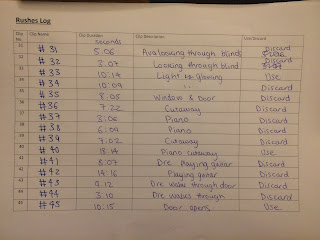 Rushes Log
Clip No. Clip Name Clip Duration Clip Description Use/Discard
seconds
31 #31 5.06 Ava looking through blinds Discard
32 #32 3:07 Looking through blind Discard
33 #33 10:14 Light glowing Use
34 #34 10:09 Discard
35 #35 8:05 Window & Door Discard
36 #36 7:22 Cutaway Discard
37 #37 3:06 Piano Discard
38 #38 6:09 Piano Discard
39 #39 7:02 Cutaway Discard
40 #40 Piano cutaway Use
41 #41 8:07 Dre Playing guitar Discard
42 #42 14:16 Playing guitar Discard
43 #43 9:12 Dre walks through door Discard
44 #44 3:10 Dre walks through Discard
45 #45 10:15 Door opens Use